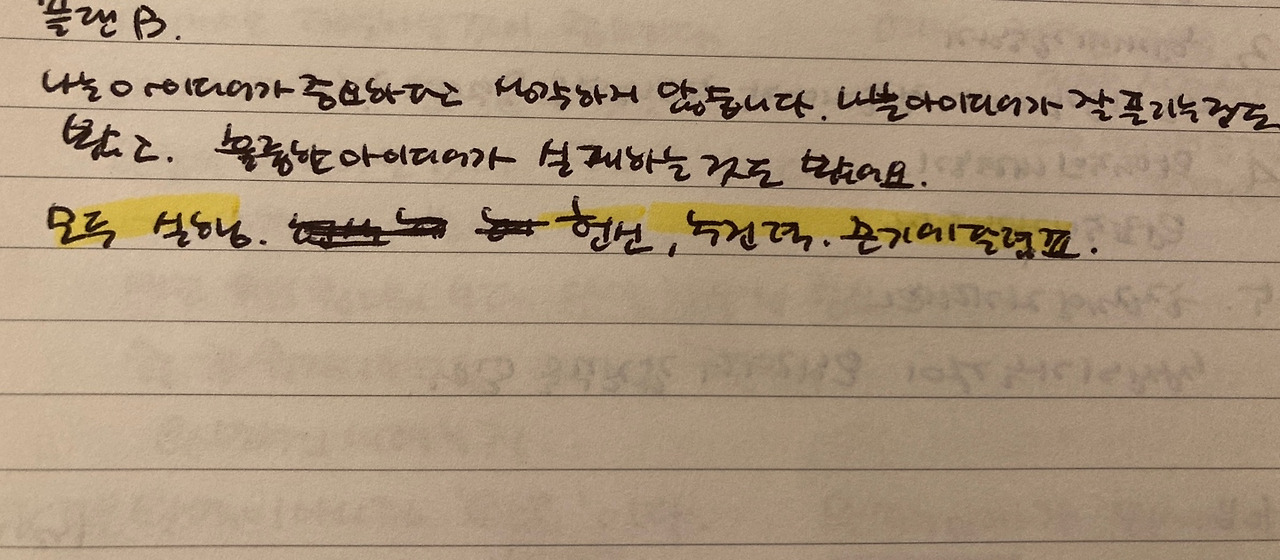 플랜 B.
나는 아이디어가 중요하다고 생각하지 않습니다. 나쁜 아이디어가 잘 풀리는 것도
봤고. 훌륭한 아이디어가 실패하는 것도 봤어요.
모두 실행. 헌신, 끈기에 달렸죠.